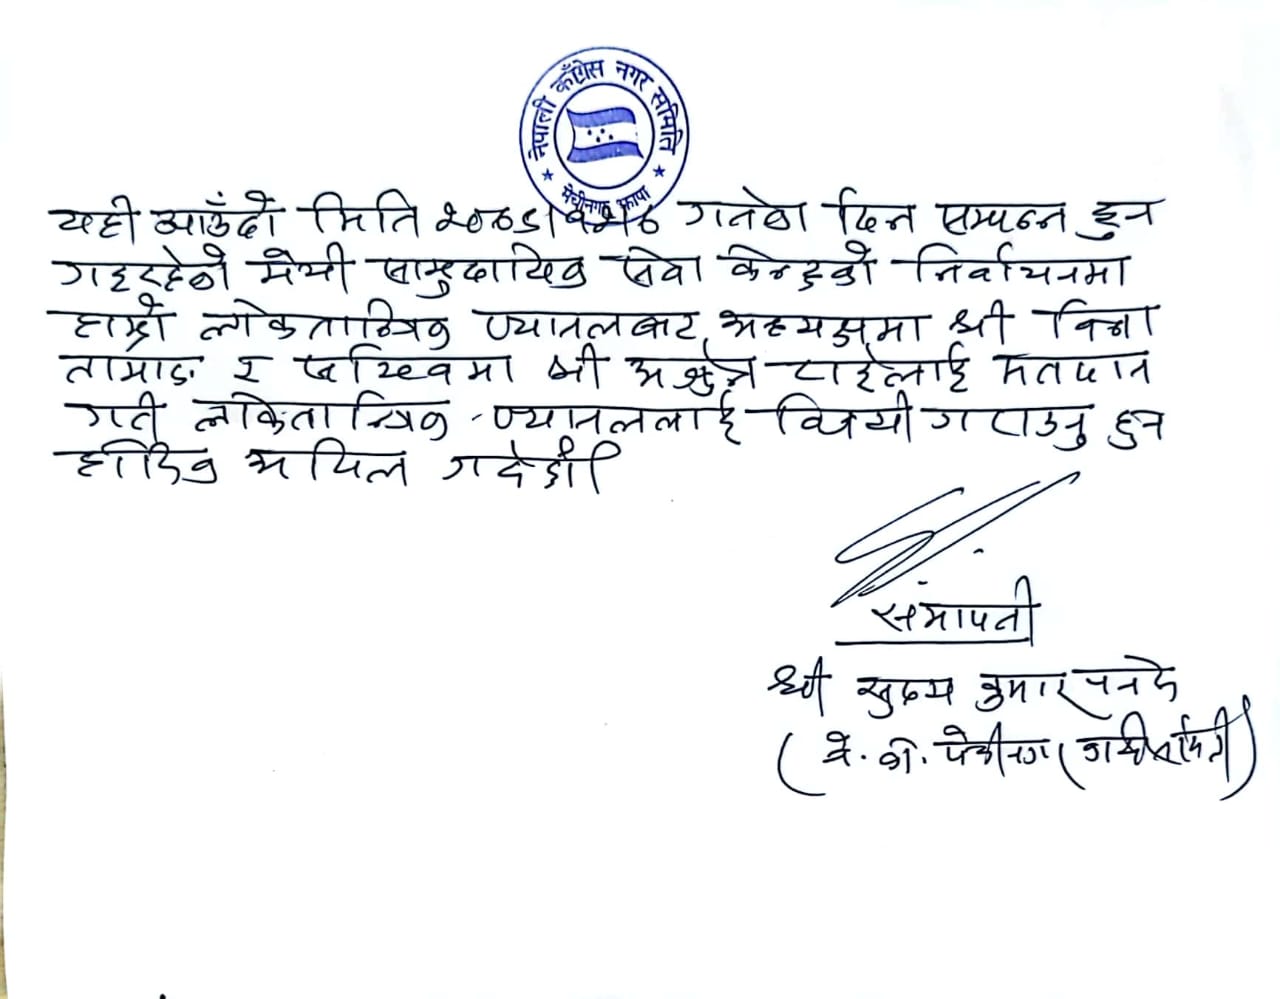 नेपाली काँग्रेस नगर समिति
मेचीनगर झापा
यही आउँदो मिति गतेका दिन सम्पन्न हुन
गइरहेको मेची सामुदायिक सेवा केन्द्रको निर्वाचनमा
हाम्रो लोकतान्त्रिक प्यानलबाट अध्यक्षमा श्री
तामाङ र सचिवमा श्री मतदान
गरी लोकतान्त्रिक प्यानललाई विजयी गराउनु हुन
हार्दिक अपिल गर्दछौं।
सभापती
श्री कुमार
(ने. का. मेचीनगर कार्यसमिती)